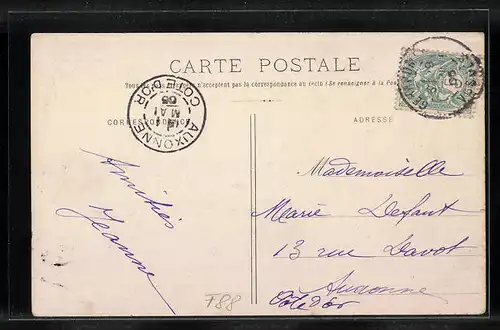 CARTE POSTALE
Tous les pays étrangers n'acceptent pas la correspondance au recto (Se renseigner à la Poste)
CORRESPONDANCE
ADRESSE
AUXONNE
MAI
05
COTE-D'OR
Amitiés
Jeanne
Mademoiselle
Marie Defaut
13 rue Davot
Auxonne
Côte d'or
F88